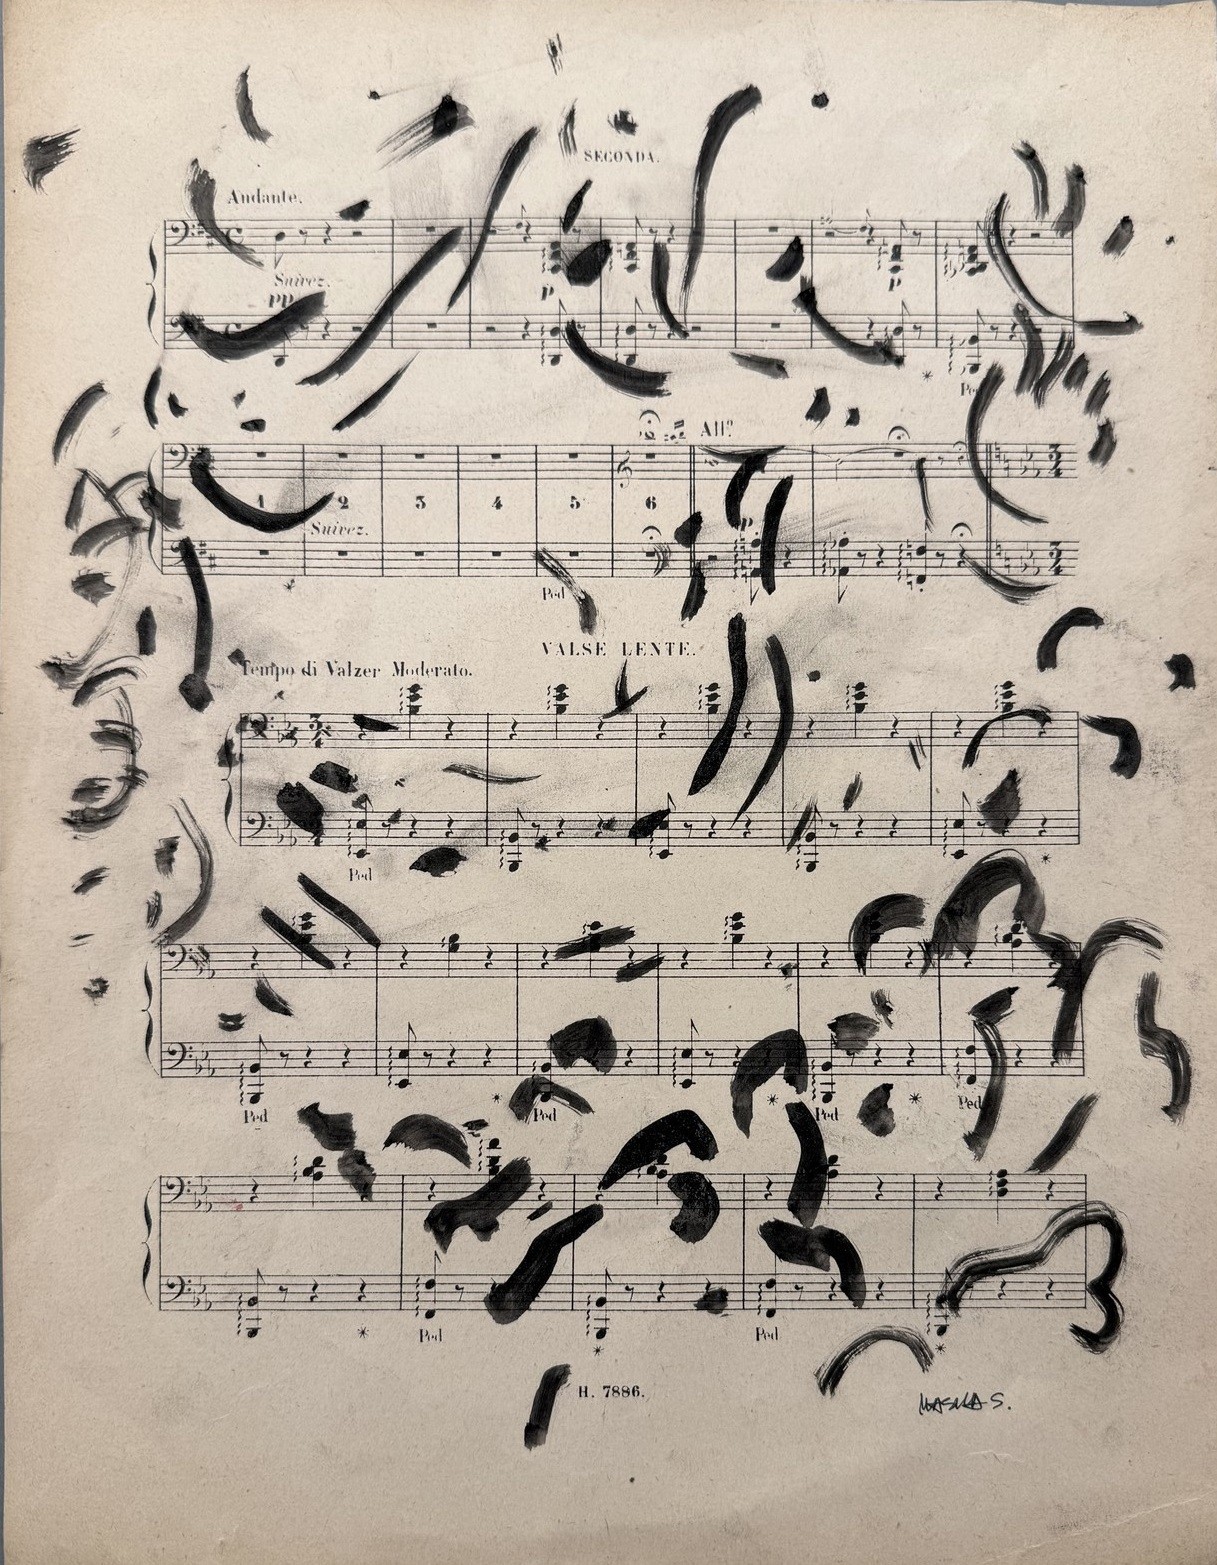 SECONDA.
Andante.
Suivez.
pp
p
p
Ped
All?
1 2 3 4 5 6
Suivez.
p
Ped
VALSE LENTE.
Tempo di Valzer Moderato.
Ped
Ped Ped Ped Ped
Ped Ped
H. 7886.